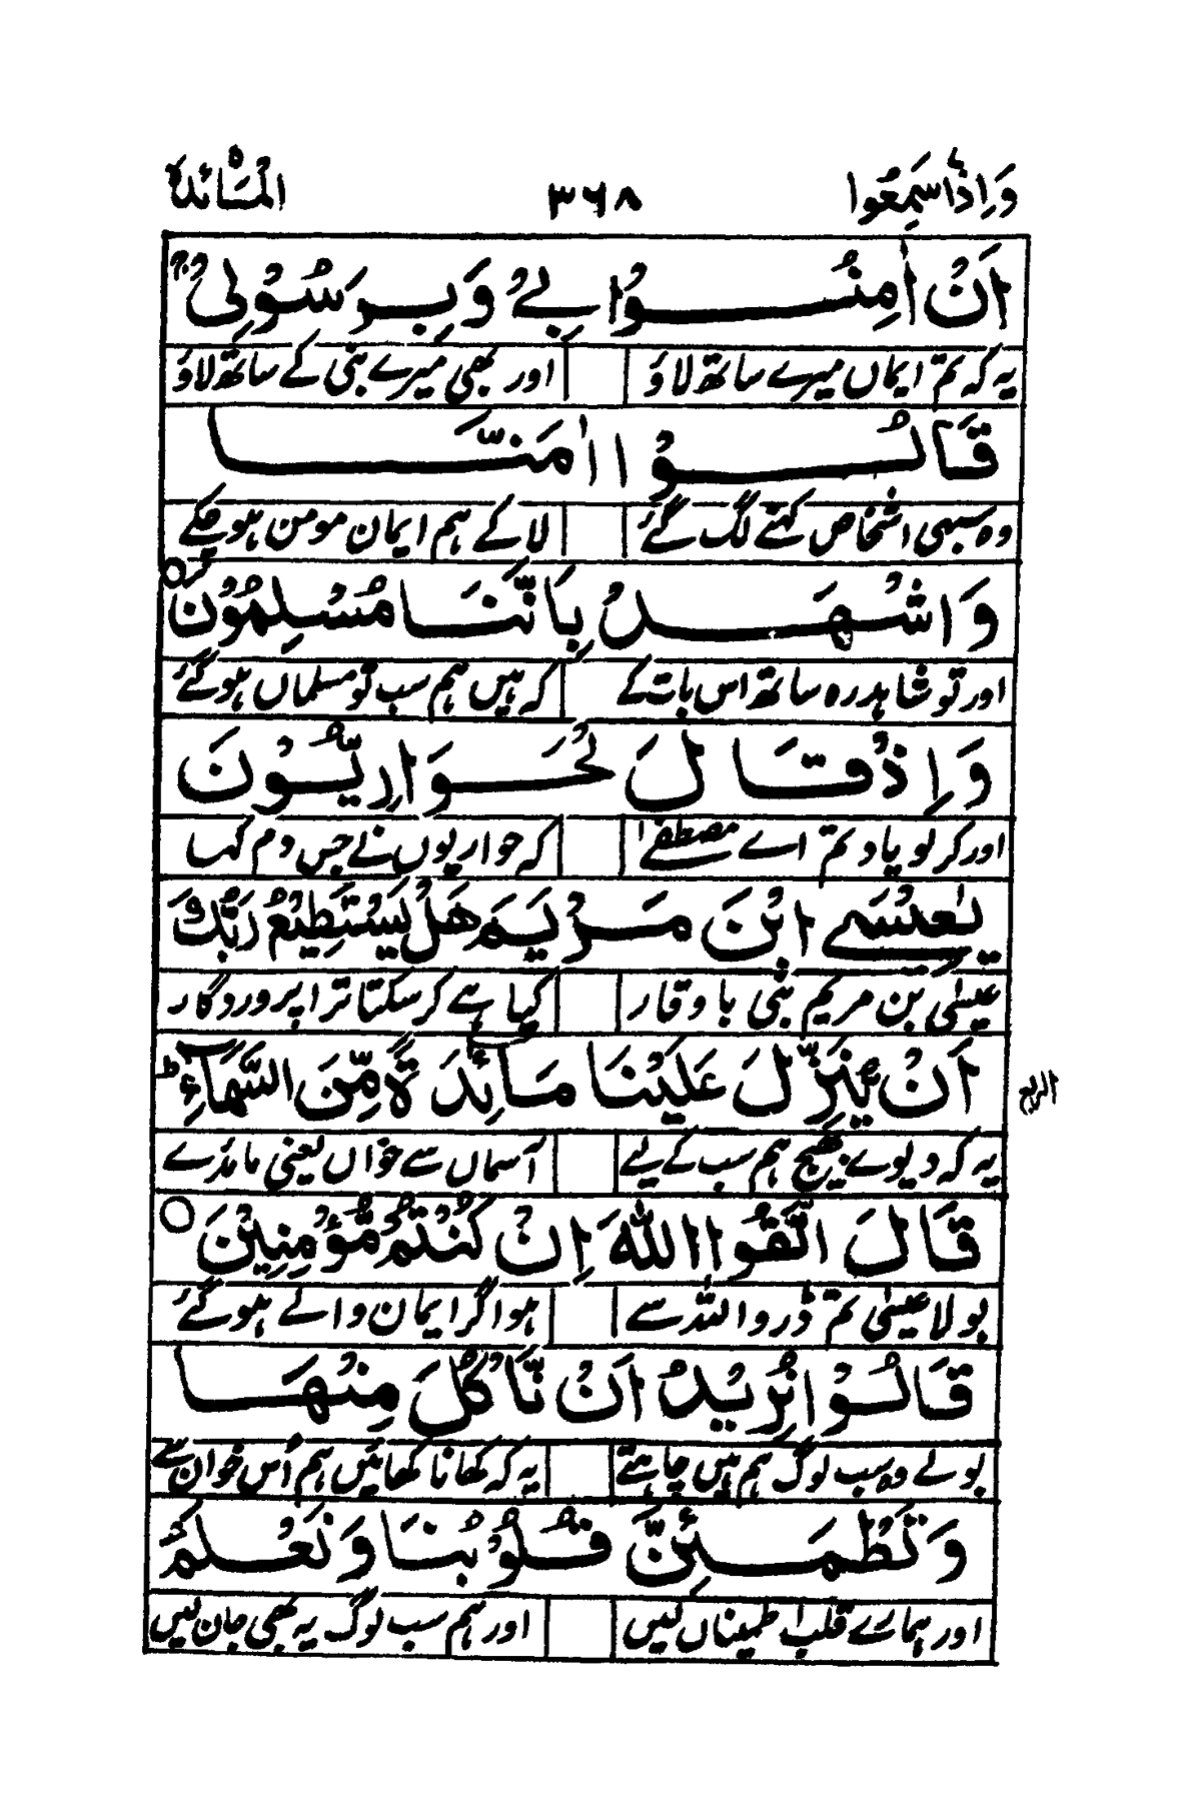 وَاِذَا سَمِعُوا ۳۶۸ الْمَائدة
اَنْ اٰمِنُوْا بِيْ وَبِرَسُوْلِيْ ۚ
یہ کہ تم ایماں میرے ساتھ لاؤ اور بھی میرے نبی کے ساتھ لاؤ
قَالُوْا اٰمَنَّا
وہ سبھی اشخاص کہنے لگ گئے لا کے ہم ایمان مومن ہو چکے
وَاشْهَدْ بِاَنَّنَا مُسْلِمُوْنَ
اور تو شاہد رہ ساتھ اس بات کے کہ ہیں ہم سب تو مسلماں ہو گئے
وَاِذْ قَالَ لْحَوَارِيُّوْنَ
اور کر لو یاد تم اے مصطفےٰ کہ حواریوں نے جس دم کہا
يٰعِيْسَے ابْنَ مَرْيَمَ هَلْ يَسْتَطِيْعُ رَبُّكَ
عیسٰی بن مریم نبی با وقار کیا ہے کر سکتا ترا پروردگار
اَنْ يُّنَزِّلَ عَلَيْنَا مَآئِدَةً مِّنَ السَّمَآءِ ؕ
الربع
یہ کہ دیوے بھیج ہم سب کے لیے آسماں سے خواں یعنی مائدے
قَالَ اتَّقُوا اللّٰهَ اِنْ كُنْتُمْ مُّؤْمِنِيْنَ ۝
بولا عیسٰی تم ڈرو اللہ سے ہو اگر ایمان والے ہو گئے
قَالُوْا نُرِيْدُ اَنْ نَّاْكُلَ مِنْهَا
بولے وہ سب لوگ ہم ہیں چاہتے یہ کہ کھانا کھائیں ہم اُس خوان سے
وَتَطْمَئِنَّ قُلُوْبُنَا وَنَعْلَمَ
اور ہمارے قلب اطمیناں لیں اور ہم سب لوگ یہ بھی جان لیں